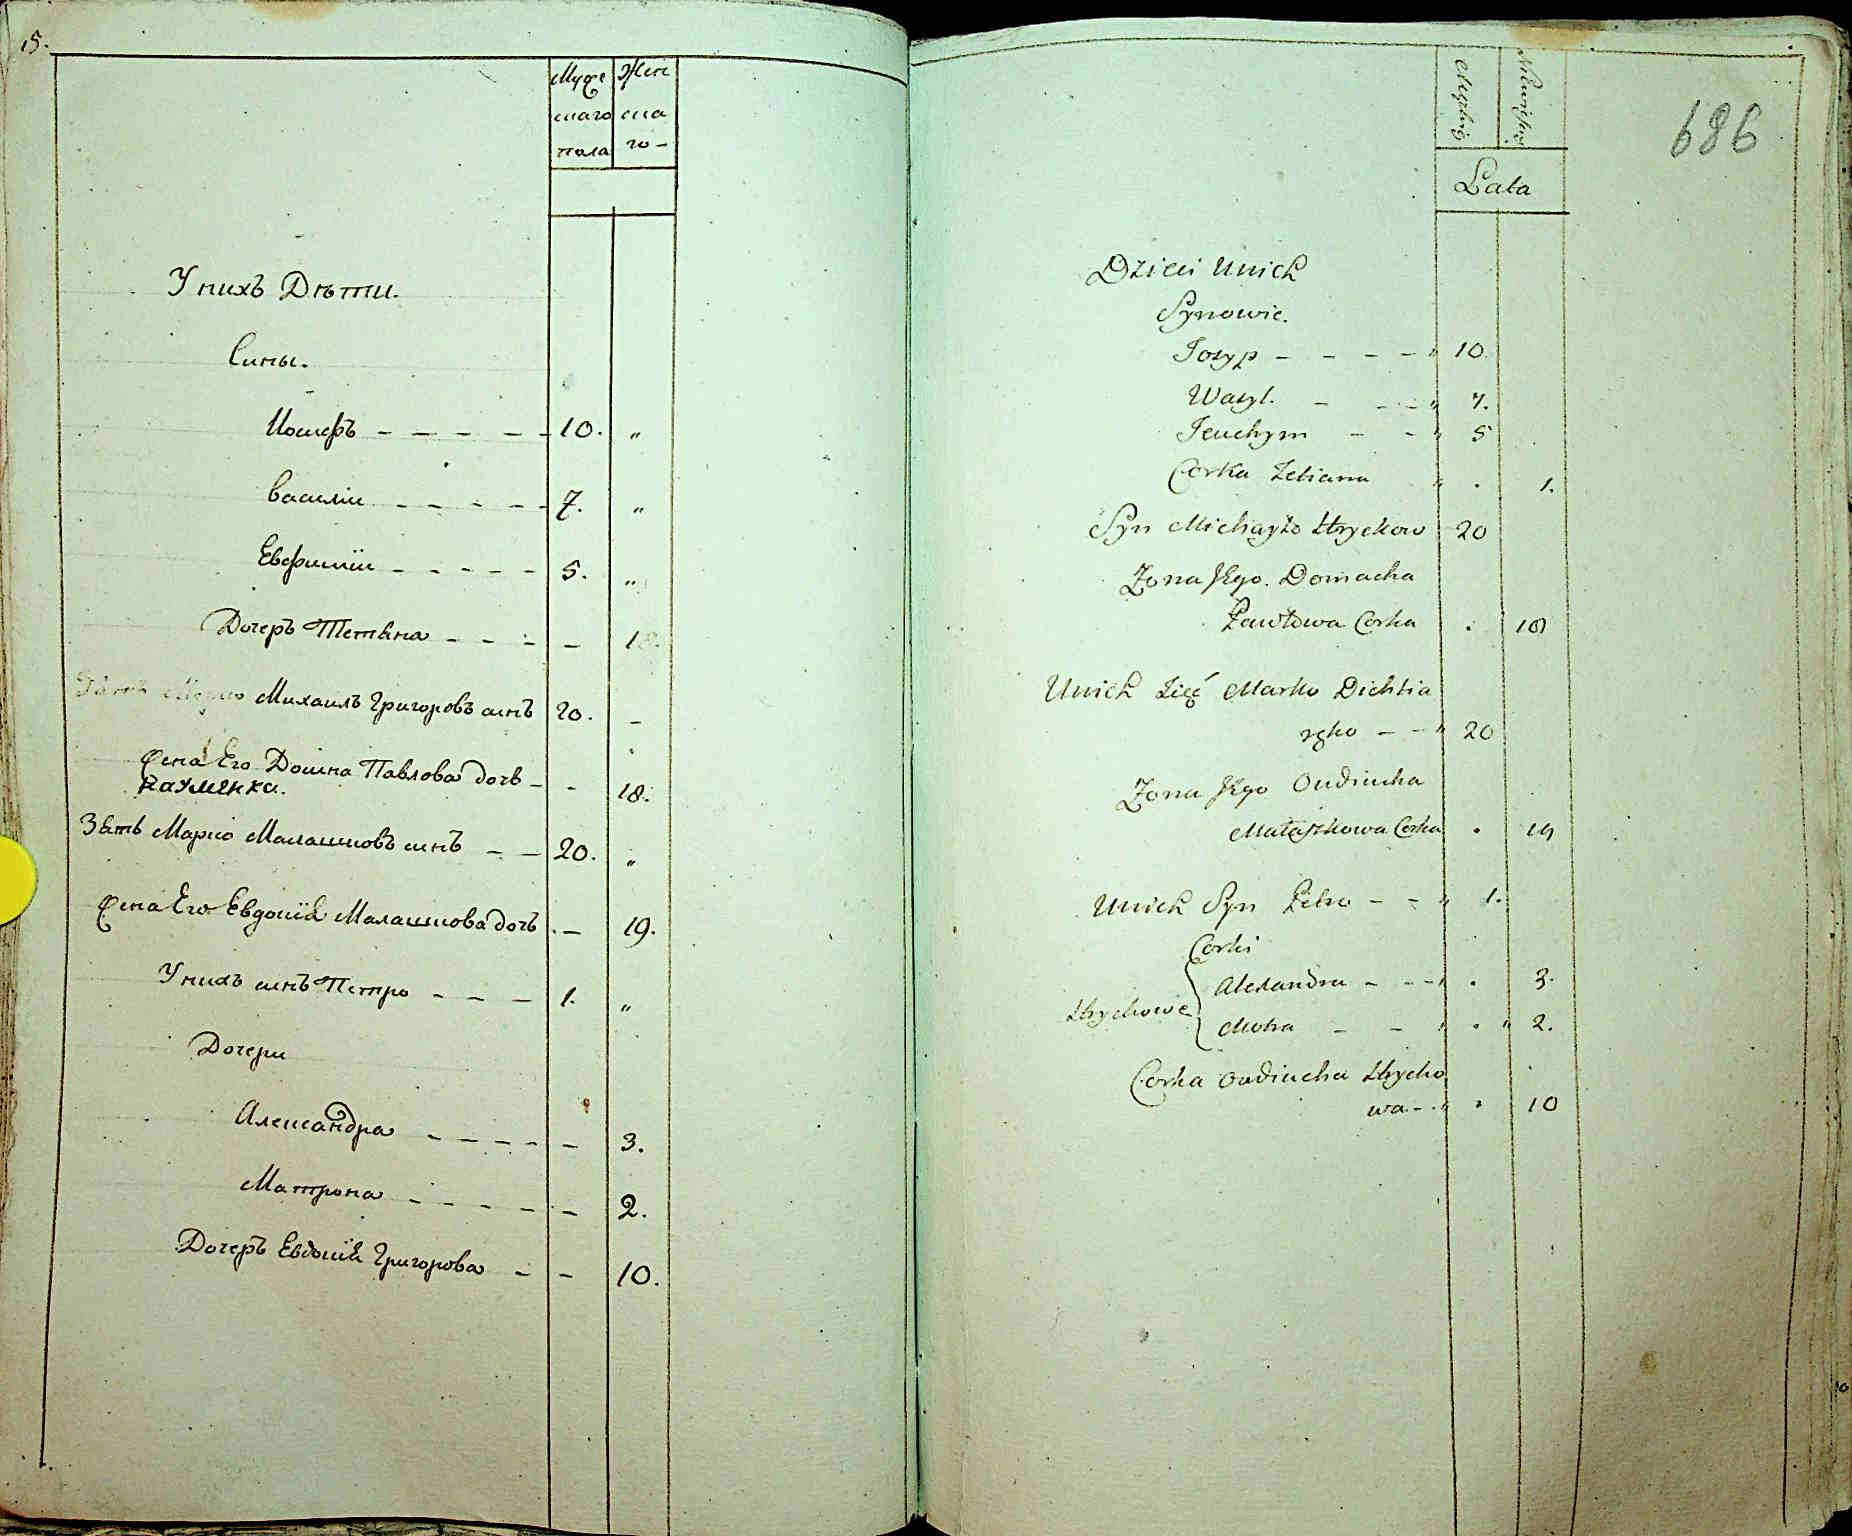 15.
Муже Жен
скаго ска
пола го -
У нихъ Дѣти.
Сины.
Иосифъ - - - - - 10. "
Василій - - - - - 7. "
Евфимій - - - - - 5. "
Дочеръ Тетяна - - - - 1
Михаилъ Григоровъ синъ 20. -
Жена Его Домна Павлова дочь - - 18.
Науменка.
Зять Марко Малашковъ синъ - - 20. "
Жена Его Евдокія Малашкова дочь - 19.
У нихъ синъ Петро - - - 1. "
Дочери
Александра - - - - - 3.
Матрона - - - - - 2.
Дочеръ Евдокія Григорова - - 10.
686
Męzkiey
Lata
Dzieci Unich
Synowie.
Josyp - - - - " 10.
Wasyl. - - - " 7.
Jeuchym - - " 5
Corka Tetianna " . 1.
Syn Michayło Hryckow 20
Zona Jego. Domacha
Pawłowa Corka . 18
Unich Zięć Marko Dichtia
ręko - - " 20
Zona Jego Oudiucha
Małaszkowa Corka . 19
Unich Syn Petro - - " 1.
Corki
Hryckowe
Alexandra - - - " . 3.
Motra - - " . " 2.
Corka Oudiucha Hrycko
wa - - " . 10